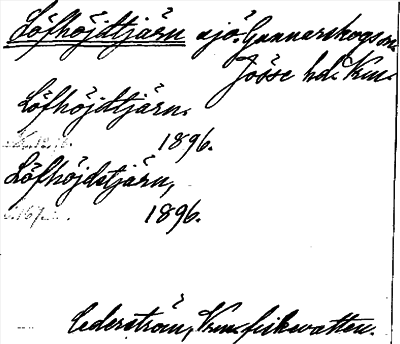 Löfhöjdtjärn sjö. Gunnarskogs sn.
Jösse hd. Vrm.
Löfhöjdtjärn.
1896.
Löfhöjdstjärn,
1896.
Cederström, Vrm. fiskvatten.